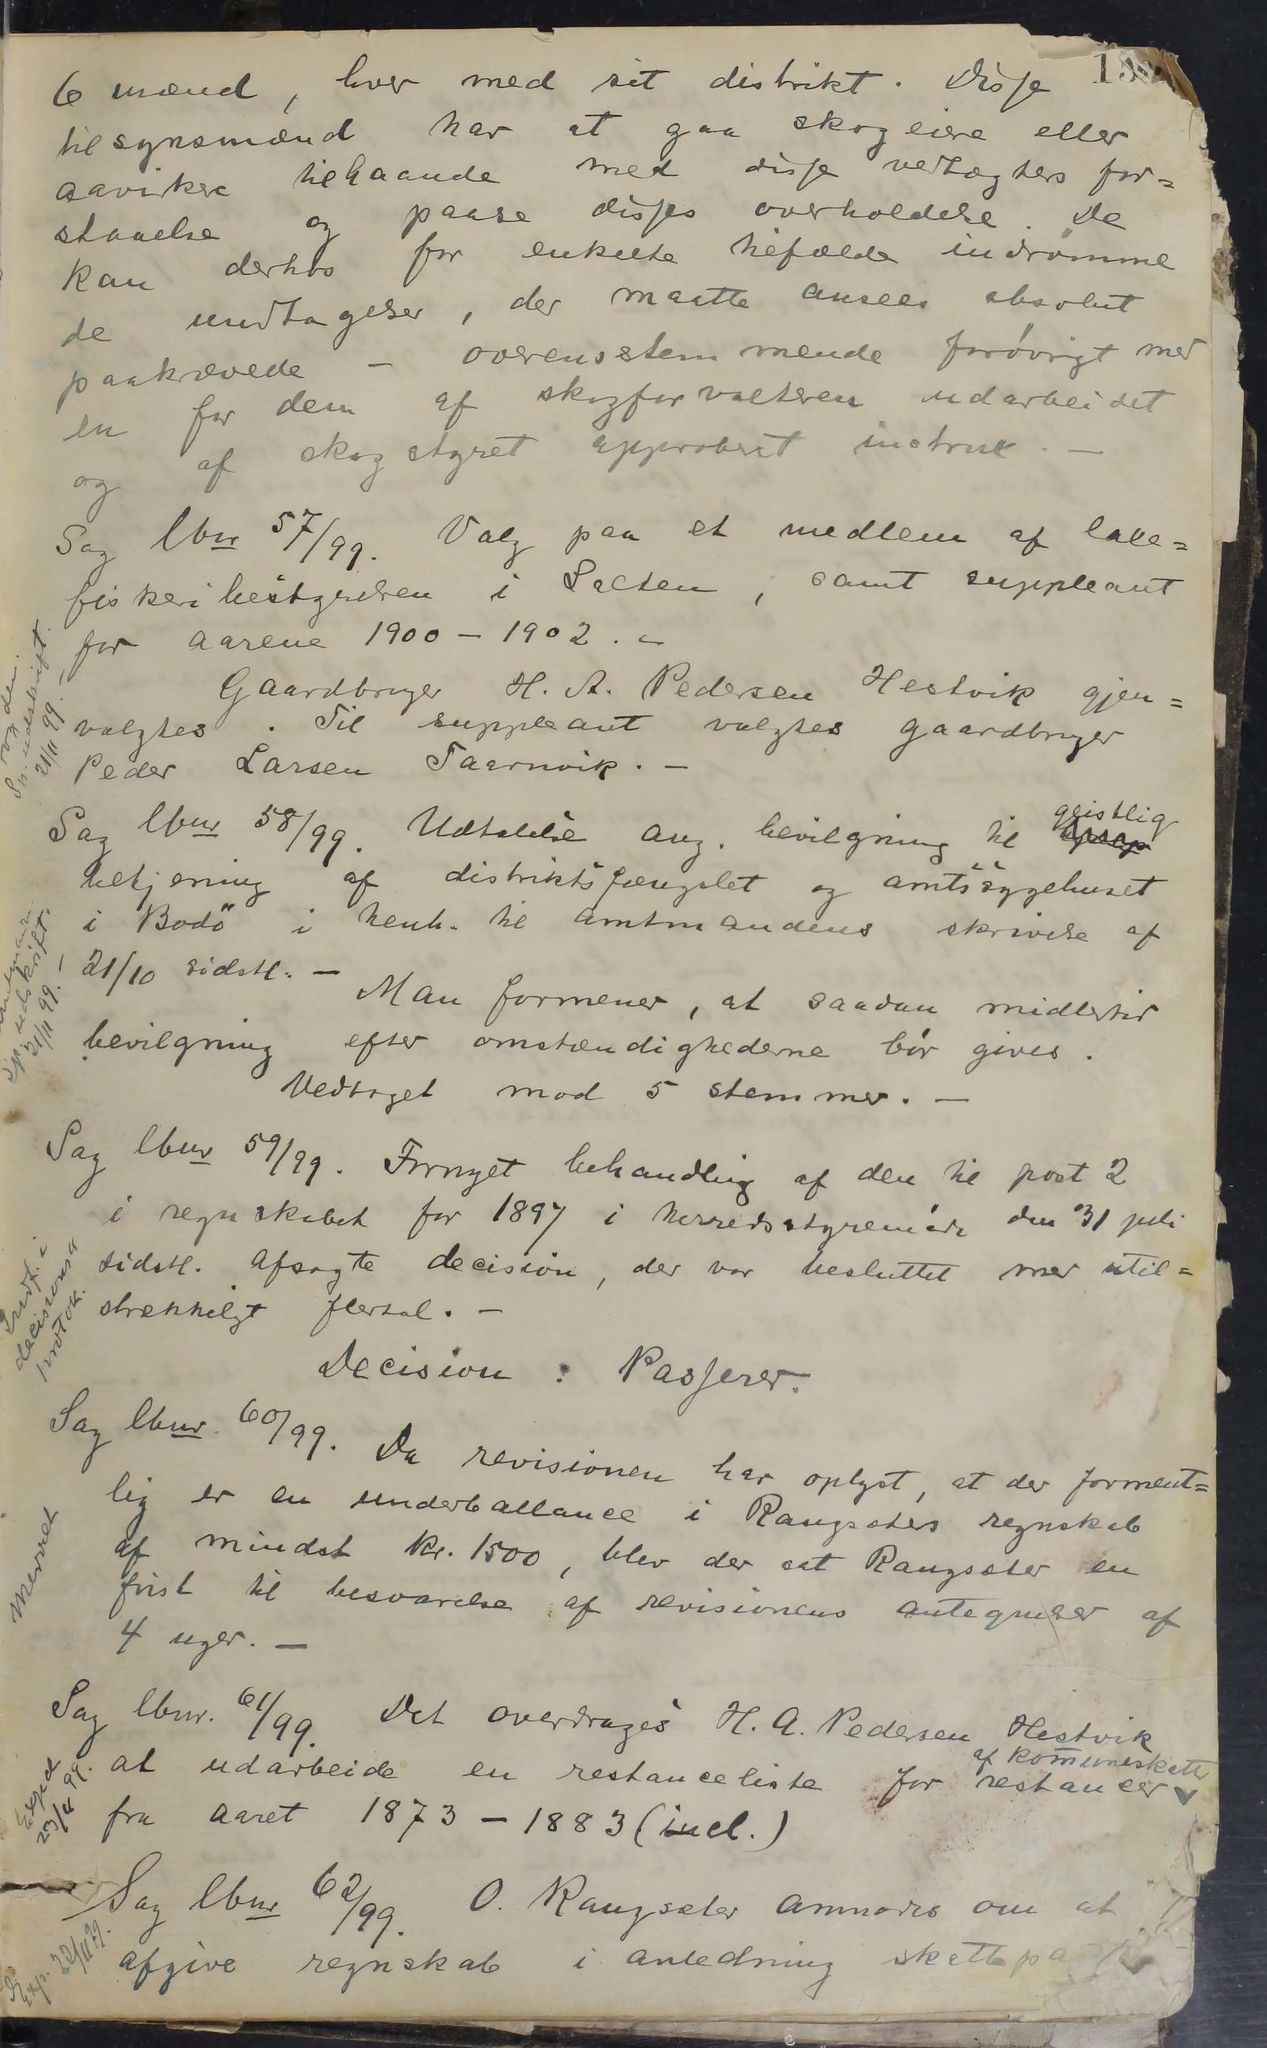 6 mænd, hver med sit distrikt. Disse
tilsynsmænd har at gaa skogeiere eller
aavirkere tilhaande med disse vedtægters for=
staaelse og paase disses overholdelse. De
kan derhos for enkelte tilfælde indrømme
de undtagelser, der maatte ansees absolut
paakrævede - overensstemmende forøvrigt med
en for dem af skogforvalteren udarbeidet
og af skogstyret approberet instrux. -
Sag lbnr 57/99. Valg paa et medlem af laxe=
fiskeribestyrelsen i Salten, samt suppleant
for aarene 1900 - 1902. -
Gaardbruger H. A. Pedersen Hestvik gjen=
valgtes. Til suppleant valgtes gaardbruger
Peder Larsen Taarnvik. -
udskrift.
21/11 99. -
Sag lbnr 58/99. Udtalelse ang. bevilgning til geistlig
betjening af distriktsfængslet og amtssygehuset
i Bodö i henh. til amtmandens skrivelse af
21/10 sidstl. -
Man formener, at saadan midlertid
bevilgning efter omstændighederne bør gives.
Vedtaget mod 5 stemmer. -
amtmann.
udskrift.
21/11 99. -
Sag lbnr 59/99. Fornyet behandling af den til post 2
i regnskabet for 1897 i herredsstyremøde den 31 juli
sidstl. afsagte decision, der var besluttet med util=
strækkeligt flertal. -
Decision : Passerer.
Indf. i
decisions
protok.
Sag lbnr. 60/99. Da revisionen har oplyst, at der forment=
lig er en underballance i Rangsæters regnskab
af mindst kr. 1500, blev der sat Rangsæter en
frist til besvarelse af revisionens antegnelser af
4 uger. -
Sag lbnr. 61/99. Det overdrages H. A. Pedersen Hestvik
at udarbeide en restanceliste for restancer af kommuneskatter
fra aaret 1873 - 1883 (incl.)
Exped
23/11 99.
Sag lbnr 62/99. O. Rangsæter anmodes om at
afgive regnskab i anledning
Exp. 22/11 99.